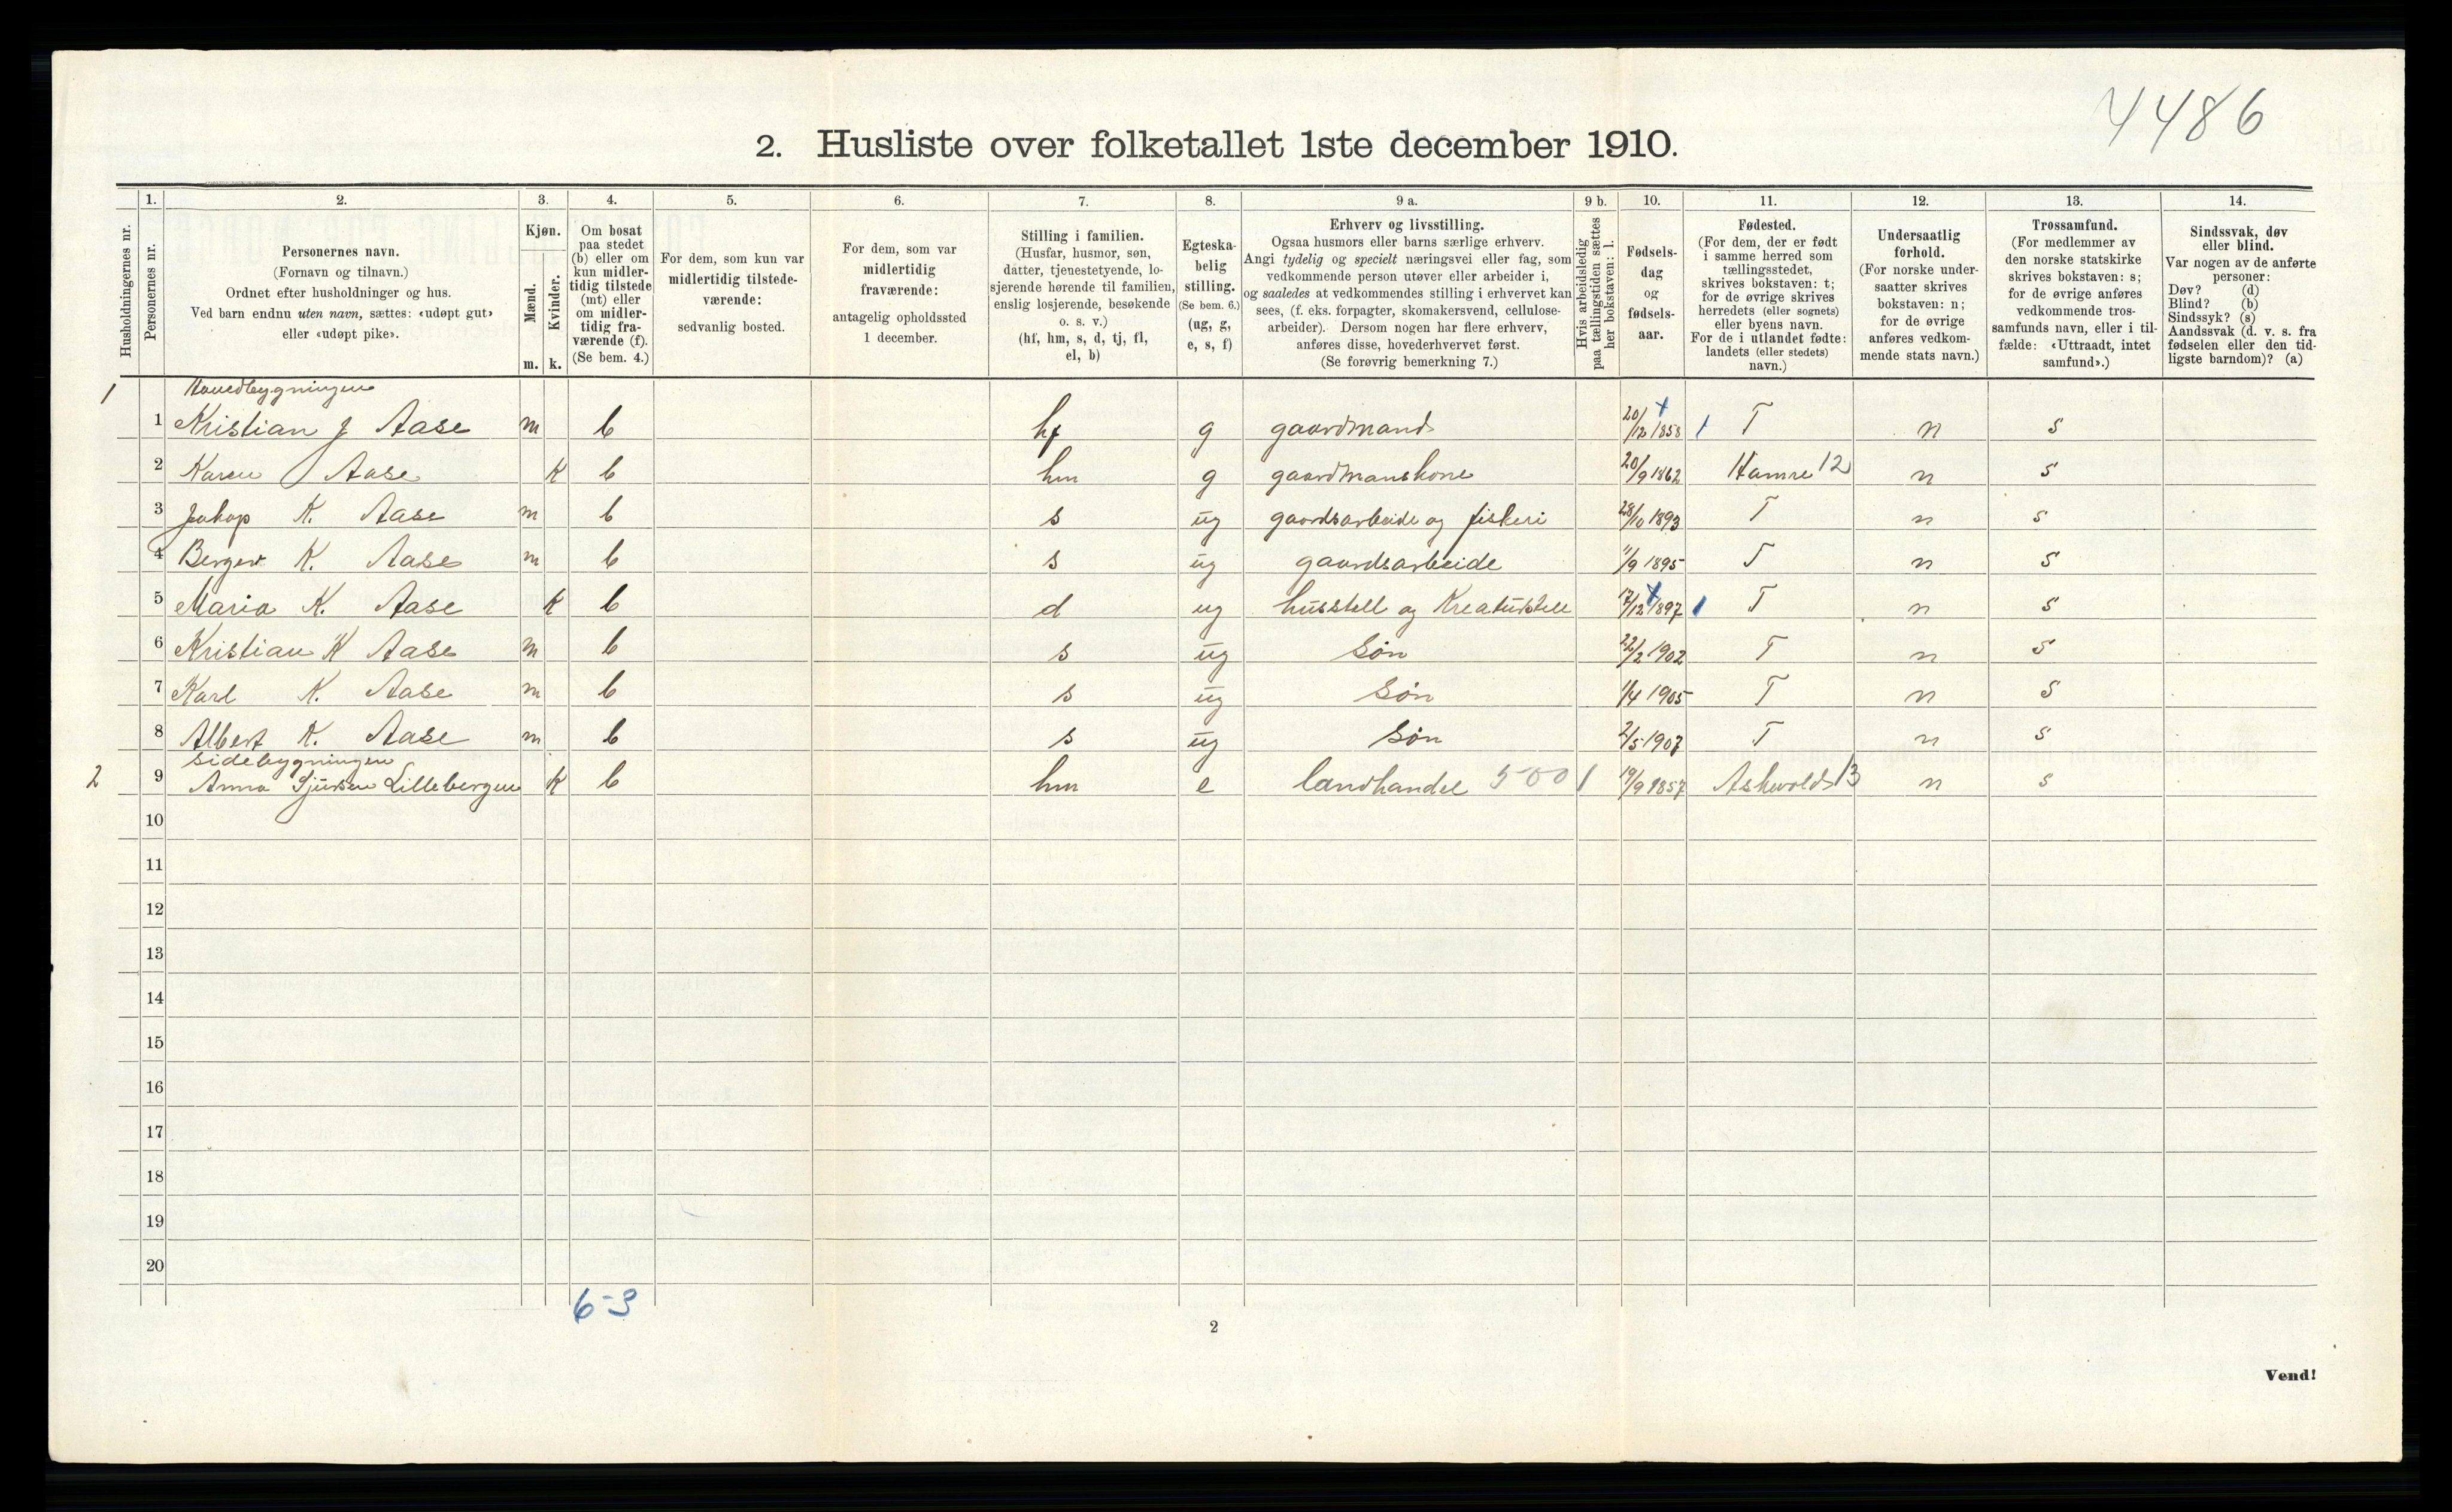 4486
2. Husliste over folketallet 1ste december 1910.
1. 2. 3. 4. 5. 6. 7. 8. 9 a. 9 b. 10. 11. 12. 13. 14.
Husholdningernes nr.
Personernes nr.
Personernes navn.
(Fornavn og tilnavn.)
Ordnet efter husholdninger og hus.
Ved barn endnu uten navn, sættes: «udøpt gut»
eller «udøpt pike».
Kjøn.
Mænd.
Kvinder.
m. k.
Om bosat
paa stedet
(b) eller om
kun midler-
tidig tilstede
(mt) eller
om midler-
tidig fra-
værende (f).
(Se bem. 4.)
For dem, som kun var
midlertidig tilstede-
værende:
sedvanlig bosted.
For dem, som var
midlertidig
fraværende:
antagelig opholdssted
1 december.
Stilling i familien.
(Husfar, husmor, søn,
datter, tjenestetyende, lo-
sjerende hørende til familien,
enslig losjerende, besøkende
o. s. v.)
(hf, hm, s, d, tj, fl,
el, b)
Egteska-
belig
stilling.
(Se bem. 6.)
(ug, g,
e, s, f)
Erhverv og livsstilling.
Ogsaa husmors eller barns særlige erhverv.
Angi tydelig og specielt næringsvei eller fag, som
vedkommende person utøver eller arbeider i,
og saaledes at vedkommendes stilling i erhvervet kan
sees, (f. eks. forpagter, skomakersvend, cellulose-
arbeider). Dersom nogen har flere erhverv,
anføres disse, hovederhvervet først.
(Se forøvrig bemerkning 7.)
Hvis arbeidsledig
paa tællingstiden sættes
her bokstaven: l.
Fødsels-
dag
og
fødsels-
aar.
Fødested.
(For dem, der er født
i samme herred som
tællingsstedet,
skrives bokstaven: t;
for de øvrige skrives
herredets (eller sognets)
eller byens navn.
For de i utlandet fødte:
landets (eller stedets)
navn.)
Undersaatlig
forhold.
(For norske under-
saatter skrives
bokstaven: n;
for de øvrige
anføres vedkom-
mende stats navn.)
Trossamfund.
(For medlemmer av
den norske statskirke
skrives bokstaven: s;
for de øvrige anføres
vedkommende tros-
samfunds navn, eller i til-
fælde: «Uttraadt, intet
samfund».)
Sindssvak, døv
eller blind.
Var nogen av de anførte
personer:
Døv? (d)
Blind? (b)
Sindssyk? (s)
Aandssvak (d. v. s. fra
fødselen eller den tid-
ligste barndom)? (a)
1 Hovedbygningen
1 Kristian J Aase m b hf g gaardmand 20/12 1858 1 T n s
2 Karen Aase k b hm g gaardmanskone 20/9 1862 Hamre 12 n s
3 Jakop K. Aase m b s ug gaardsarbeide og fiskeri 28/10 1893 T n s
4 Berger K. Aase m b s ug gaardsarbeide 11/9 1895 T n s
5 Maria K. Aase k b d ug husstell og Kreaturstell 17/12 1897 1 T n s
6 Kristian K Aase m b s ug Søn 22/2 1902 T n s
7 Karl K. Aase m b s ug Søn 1/4 1905 T n s
8 Albert K. Aase m b s ug Søn 2/5 1907 T n s
Sidebygningen
2 9 Anna Sjursen Lillebergen k b hm e landhandel 500 1 19/9 1857 Askvold 13 n s
10
11
12
13
14
15
16
17
18
19
20
6-3
2
Vend!